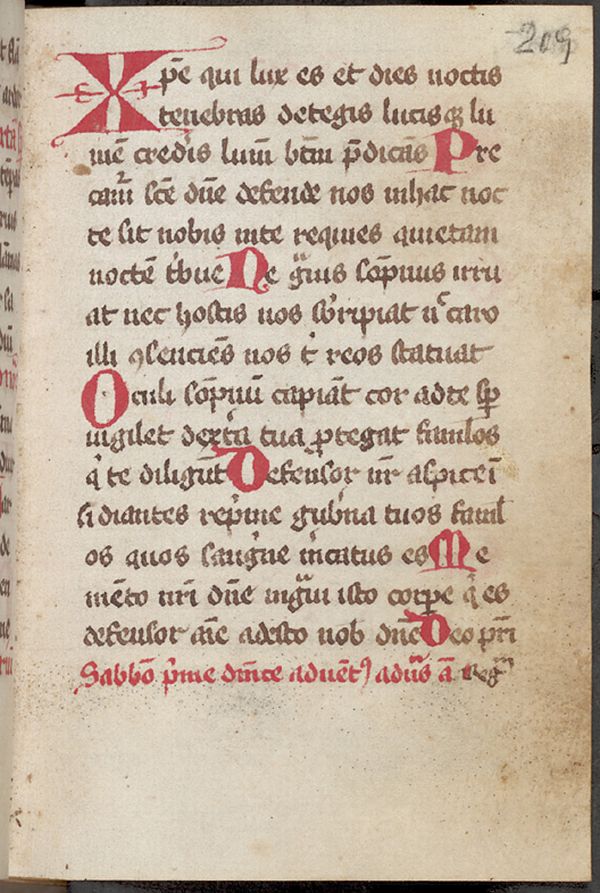 209
Xp̄e qui lux es et dies noctis
tenebras detegis lucisqꝫ lu
mē crederis lum̄ btm̄ p̄dicās Pre
cam̄ scē dn̄e defende nos in hac noc
te sit nobis in te requies quietam
noctē tˈbue Ne gͣuis sōpnus irru
at nec hostis nos surripiat nͨ caro
illi ꝯsenciēs nos tˈ reos statuat
Oculi sōpnū capiāt cor ad te sp̄
uigilet dextˈa tua ꝓtegat famlos
qˈ te diligūt Defensor nr̄ aspice ī
sidiantes rep̄me gub̄na tuos faml
os quos sanguˈne mˈcatus es Me
mēto nr̄i dn̄e in gͣui isto corꝑe qˈ es
defensor aīe adesto nob dn̄e Deo pr̄i
Sabbō pˈme dn̄ice aduētꝰ ad uˈs ā